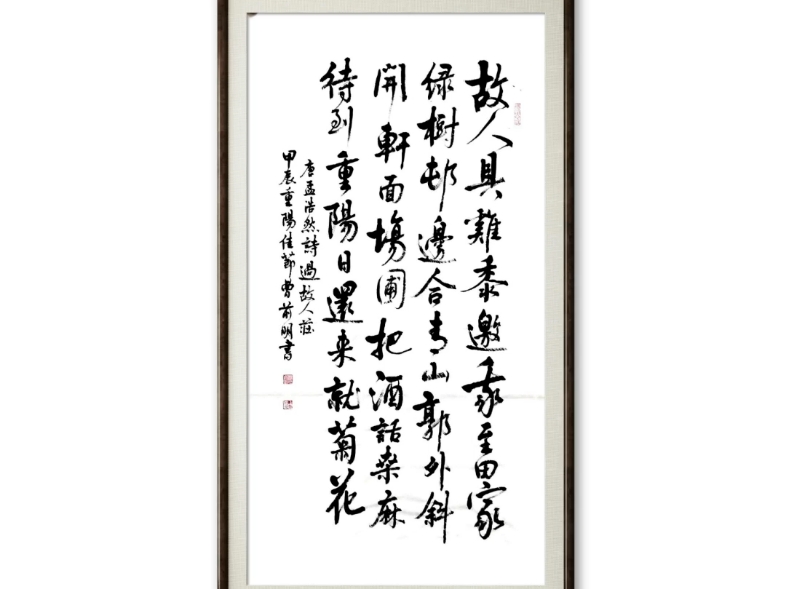 故人具雞黍邀我至田家
绿樹邨邊合青山郭外斜
開軒面場圃把酒話桑麻
待到重陽日還来就菊花
唐孟浩然詩過故人莊
甲辰重陽佳節曹前明書